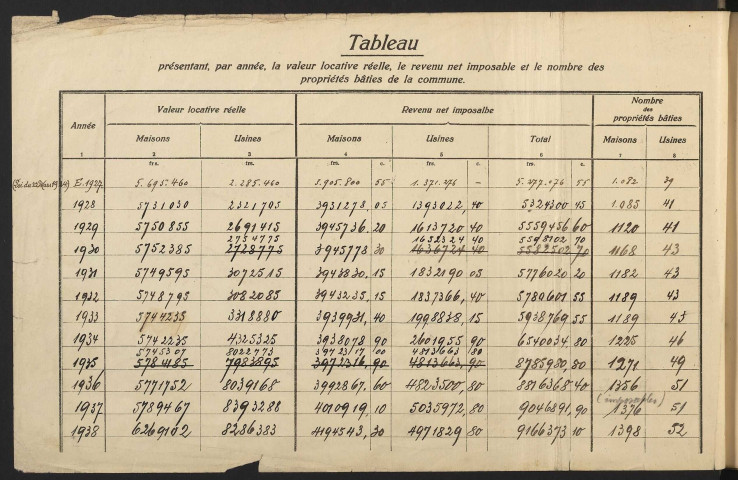 Tableau
présentant, par année, la valeur locative réelle, le revenu net imposable et le nombre des
propriétés bâties de la commune.
Année Valeur locative réelle Revenu net imposalbe Nombre des propriétés bâties
Maisons Usines Maisons Usines Total Maisons Usines
1 2 3 4 5 6 7 8
frs. frs. frs. c. frs. c. frs. c.
E. 1927 5.695.460 2.285.460 3.905.800 55 1.371.276 — 5.277.076 55 1.082 39
1928 5731030 2321705 3931278,05 1393022,40 5324300 45 1.085 41
1929 5750855 2691415 3945736,20 1613720 40 5559456 60 1120 41
2754775 1652324 40 5598102 70
1930 5752385 2728775 3945778 30 1636724 40 5582502 70 1168 43
1931 5749595 3072515 3943830,15 1832190 05 5776020 20 1182 43
1932 5748795 3082085 3943235,15 1837366,40 5780601 55 1189 43
1933 5744235 3318880 3939931,40 1998838,15 5938769 55 1189 43
1934 5742235 4325325 3938078 90 2601955 90 6540034 80 1225 46
5745307 8022773 3972317 00 4813663 80
1935 5784185 7983895 3972316,90 4813663,90 8785980,80 1271 49
1936 5771752 8039168 3992867,60 4823500 80 8816368 40 1356 51
(imposables)
1937 5789467 8393288 4010919,10 5035972,80 9046891,90 1376 51
1938 6269102 8286383 4194543,30 4971829 80 9166373 10 1398 52